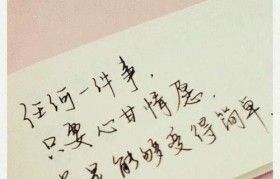 任何一件事，
只要心甘情愿，
能够变得简单